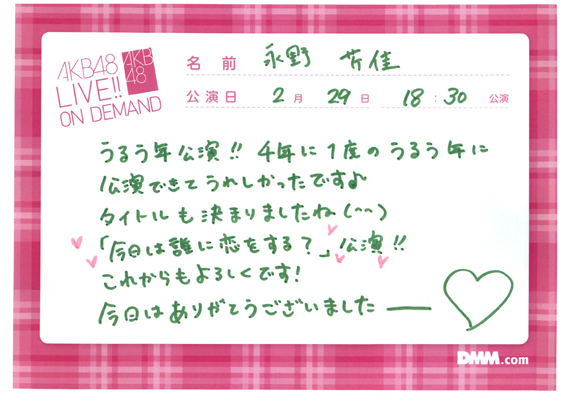 AKB48
LIVE!!
ON DEMAND
AKB
48
名前 永野 芹佳
公演日 2月 29日 18:30 公演
うるう年公演!! 4年に1度のうるう年に
公演できてうれしかったです♪
タイトルも決まりましたね(^^)
「今日は誰に恋をする?」公演!!
これからもよろしくです!
今日はありがとうございましたーー
DMM.com